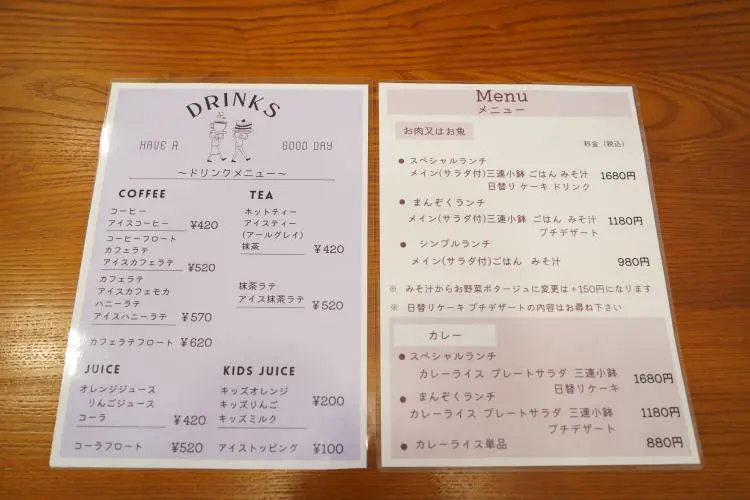 DRINKS
HAVE A GOOD DAY
～ドリンクメニュー～
COFFEE
コーヒー
アイスコーヒー ¥420
コーヒーフロート
カフェラテ
アイスカフェラテ ¥520
カフェラテ
アイスカフェモカ
ハニーラテ
アイスハニーラテ ¥570
カフェラテフロート ¥620
TEA
ホットティー
アイスティー
(アールグレイ)
抹茶 ¥420
抹茶ラテ
アイス抹茶ラテ ¥520
JUICE
オレンジジュース
りんごジュース
コーラ ¥420
コーラフロート ¥520
KIDS JUICE
キッズオレンジ
キッズりんご
キッズミルク ¥200
アイストッピング ¥100
Menu
メニュー
お肉又はお魚
料金（税込）
● スペシャルランチ
メイン(サラダ付)三連小鉢 ごはん みそ汁
日替り ケーキ ドリンク 1680円
● まんぞくランチ
メイン(サラダ付)三連小鉢 ごはん みそ汁
プチデザート 1180円
● シンプルランチ
メイン(サラダ付)ごはん みそ汁 980円
※ みそ汁からお野菜ポタージュに変更は＋150円になります
※ 日替りケーキ プチデザートの内容はお尋ね下さい
カレー
● スペシャルランチ
カレーライス プレートサラダ 三連小鉢
日替りケーキ 1680円
● まんぞくランチ
カレーライス プレートサラダ 三連小鉢
プチデザート 1180円
● カレーライス単品 880円